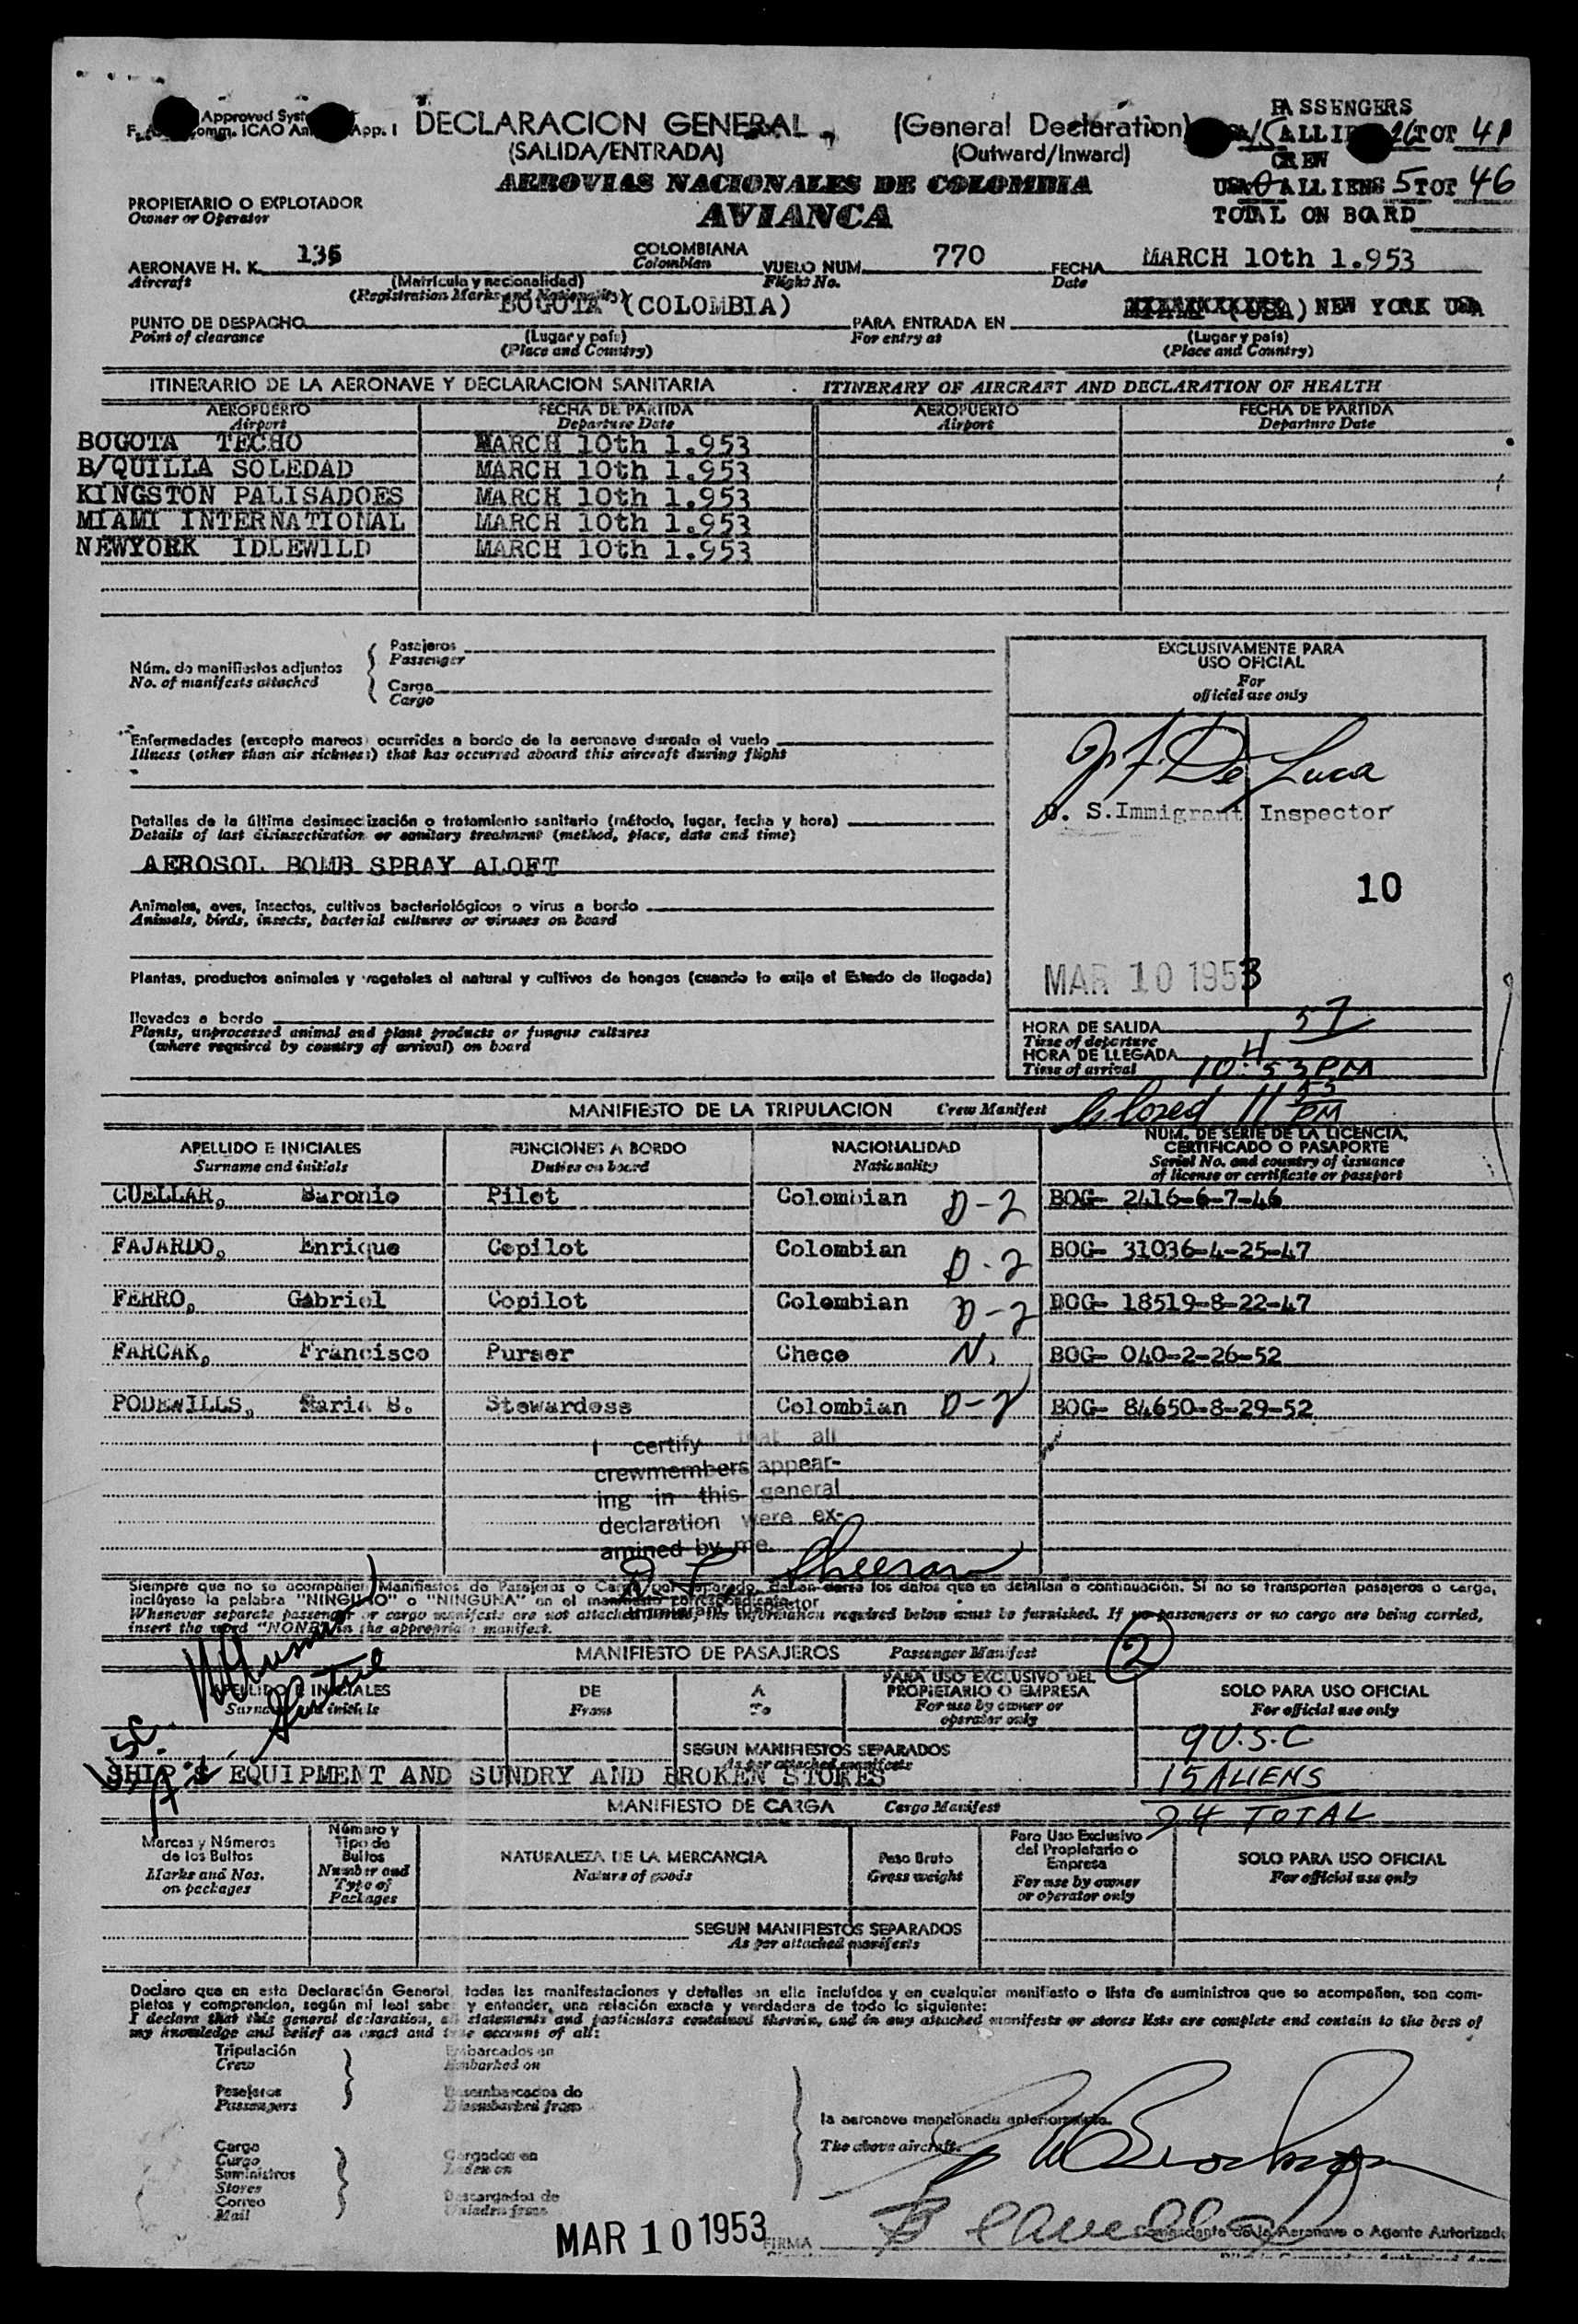 Approved Syst
Comm. ICAO An App. I
DECLARACION GENERAL (General Declaration)
(SALIDA/ENTRADA) (Outward/Inward)
PASSENGERS
15 ALLIE 26 TOT 41
CREW
USA 0 ALLIENS 5 TOT 46
TOTAL ON BOARD
AEROVIAS NACIONALES DE COLOMBIA
AVIANCA
PROPIETARIO O EXPLOTADOR
Owner or Operator
AERONAVE H. K. 136 COLOMBIANA VUELO NUM. 770 FECHA MARCH 10th 1.953
Aircraft Colombian Flight No. Date
(Matrícula y nacionalidad)
(Registration Marks and Nationality)
PUNTO DE DESPACHO BOGOTA (COLOMBIA) PARA ENTRADA EN (USA) NEW YORK USA
Point of clearance (Lugar y país) For entry at (Lugar y país)
(Place and Country) (Place and Country)
ITINERARIO DE LA AERONAVE Y DECLARACION SANITARIA ITINERARY OF AIRCRAFT AND DECLARATION OF HEALTH
AEROPUERTO FECHA DE PARTIDA AEROPUERTO FECHA DE PARTIDA
Airport Departure Date Airport Departure Date
BOGOTA TECHO MARCH 10th 1.953
B/QUILLA SOLEDAD MARCH 10th 1.953
KINGSTON PALISADOES MARCH 10th 1.953
MIAMI INTERNATIONAL MARCH 10th 1.953
NEWYORK IDLEWILD MARCH 10th 1.953
Núm. de manifiestos adjuntos
No. of manifests attached
Pasajeros
Passenger
Carga
Cargo
Enfermedades (excepto mareos) ocurridas a bordo de la aeronave durante el vuelo
Illness (other than air sickness) that has occurred aboard this aircraft during flight
Detalles de la última desinsectización o tratamiento sanitario (método, lugar, fecha y hora)
Details of last disinsectization or sanitary treatment (method, place, date and time)
AEROSOL BOMB SPRAY ALOFT
Animales, aves, insectos, cultivos bacteriológicos o virus a bordo
Animals, birds, insects, bacterial cultures or viruses on board
Plantas, productos animales y vegetales al natural y cultivos de hongos (cuando lo exija el Estado de llegada)
llevados a bordo
Plants, unprocessed animal and plant products or fungus cultures
(where required by country of arrival) on board
EXCLUSIVAMENTE PARA
USO OFICIAL
For
official use only
De Luca
U. S. Immigrant Inspector
10
MAR 10 1953
HORA DE SALIDA
Time of departure
HORA DE LLEGADA
Time of arrival 10:53 PM
MANIFIESTO DE LA TRIPULACION Crew Manifest Closed 11 55 PM
APELLIDO E INICIALES FUNCIONES A BORDO NACIONALIDAD NUM. DE SERIE DE LA LICENCIA, CERTIFICADO O PASAPORTE
Surname and initials Duties on board Nationality Serial No. and country of issuance of license or certificate or passport
CUELLAR, Baronio Pilot Colombian D-2 BOG- 2416-6-7-46
FAJARDO, Enrique Copilot Colombian D-2 BOG- 31036-4-25-47
FERRO, Gabriel Copilot Colombian D-2 BOG- 18519-8-22-47
FARCAK, Francisco Purser Checo N. BOG- 040-2-26-52
PODEWILLS, Maria B. Stewardess Colombian D-2 BOG- 84650-8-29-52
I certify that all
crewmembers appear-
ing in this general
declaration were ex-
amined by me.
Sheeran
Immigrant Inspector
Siempre que no se acompañen Manifiestos de Pasajeros o Carga por separado, deben darse los datos que se detallan a continuación. Si no se transportan pasajeros o carga,
inclúyase la palabra "NINGUNO" o "NINGUNA" en el manifiesto correspondiente.
Whenever separate passenger or cargo manifests are not attached the information required below must be furnished. If no passengers or no cargo are being carried,
insert the word "NONE" in the appropriate manifest.
MANIFIESTO DE PASAJEROS Passenger Manifest 2
APELLIDO E INICIALES DE A PARA USO EXCLUSIVO DEL PROPIETARIO O EMPRESA SOLO PARA USO OFICIAL
Surname and initials From To For use by owner or operator only For official use only
SEGUN MANIFIESTOS SEPARADOS
As per attached manifests
9 U.S.C
15 ALIENS
24 TOTAL
SHIP'S EQUIPMENT AND SUNDRY AND BROKEN STORES
MANIFIESTO DE CARGA Cargo Manifest
Marcas y Números de los Bultos Número y Tipo de Bultos NATURALEZA DE LA MERCANCIA Peso Bruto Para Uso Exclusivo del Propietario o Empresa SOLO PARA USO OFICIAL
Marks and Nos. on packages Number and Type of Packages Nature of goods Gross weight For use by owner or operator only For official use only
SEGUN MANIFIESTOS SEPARADOS
As per attached manifests
Declaro que en esta Declaración General, todas las manifestaciones y detalles en ella incluídos y en cualquier manifiesto o lista de suministros que se acompañen, son com-
pletos y comprenden, según mi leal saber y entender, una relación exacta y verdadera de todo lo siguiente:
I declare that this general declaration, all statements and particulars contained therein, and in any attached manifests or stores lists are complete and contain to the bess of
my knowledge and belief an exact and true account of all:
Tripulación Embarcados en
Crew Embarked on
Pasajeros Desembarcados de
Passengers Disembarked from
la aeronave mencionada anteriormente.
The above aircraft.
Carga Cargados en
Cargo Laden on
Suministros
Stores
Correo Descargados de
Mail Unladen from
MAR 10 1953
FIRMA
Comandante de la Aeronave o Agente Autorizado